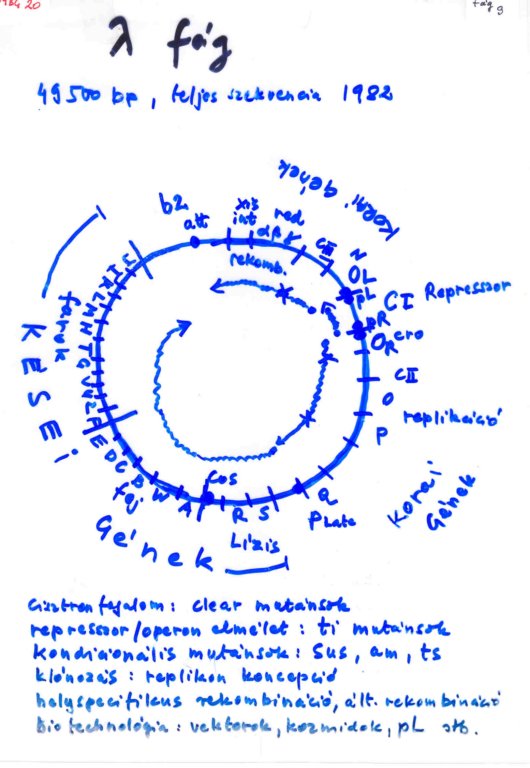 fág 9
λ fág
49500 bp, teljes szekvencia 1982
Korai gének
b2
att
xis
int
red
α β γ
cIII
N
OL
pL
CI Repressor
pR
OR
cro
cII
O
replikáció
P
Korai
Gének
Q
PLate
S
R
Lízis
cos
A
W
B
C
D
E
fej
F
Z
U
V
G
T
H
M
L
K
I
J
farok
rekomb.
KÉSEi
Gének
cisztron fogalom: clear mutánsok
repressor/operon elmélet: ti mutánsok
kondicionális mutánsok: Sus, am, ts
klónozás: replikon koncepció
helyspecifikus rekombináció, ált. rekombináció
biotechnológia: vektorok, kozmidok, pL stb.